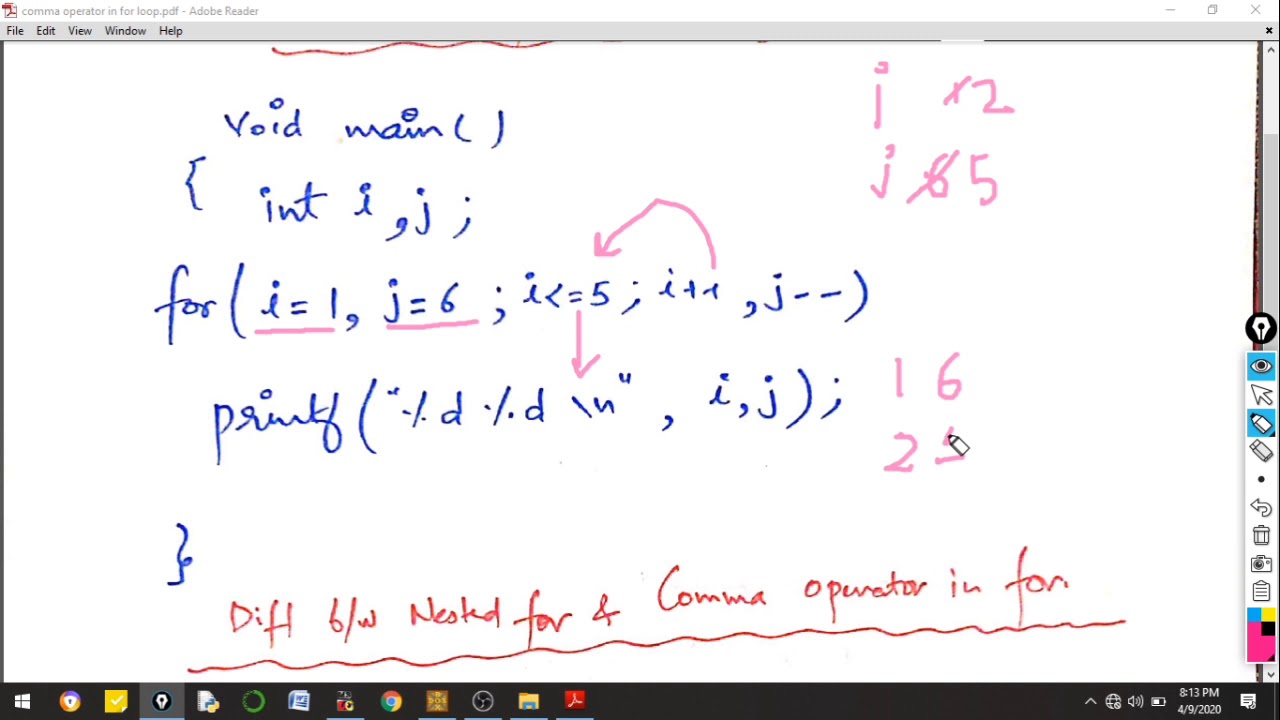 comma operator in for loop.pdf - Adobe Reader
File Edit View Window Help
i 1 2
j 6 5
void main()
{ int i, j ;
for( i = 1, j = 6 ; i <= 5 ; i++ , j-- )
printf("%d %d \n" , i, j) ; 1 6
2 5
}
Diff b/w Nested for & Comma operator in for.
8:13 PM
4/9/2020